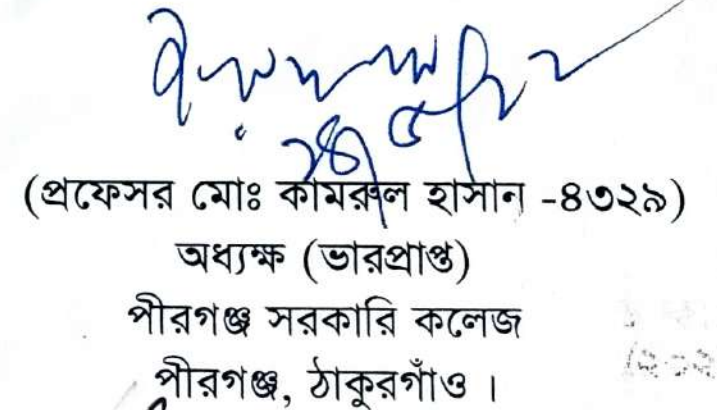 (প্রফেসর মোঃ কামরুল হাসান -৪৩২৯)
অধ্যক্ষ (ভারপ্রাপ্ত)
পীরগঞ্জ সরকারি কলেজ
পীরগঞ্জ, ঠাকুরগাঁও ।